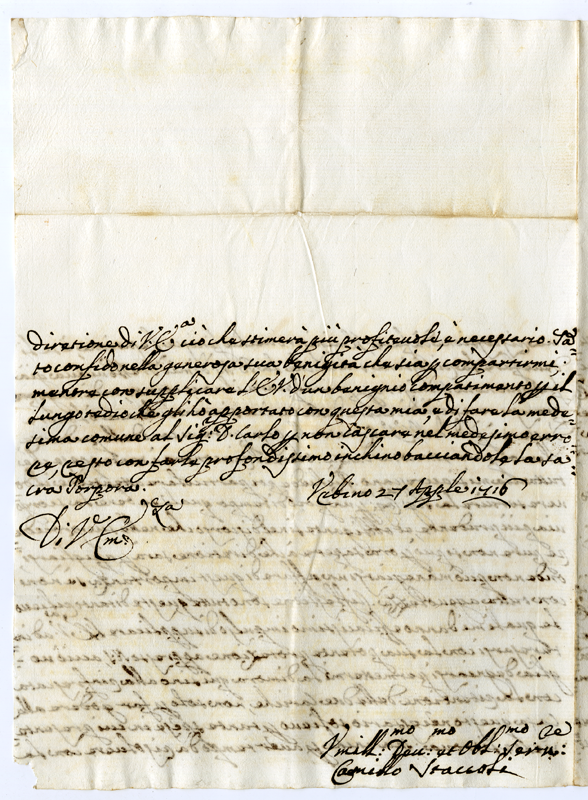 diretione di V. Em.a ciò che stimerà più profitevole è necessario. Tā
to confido nella generosa sua benigità che sia p compartirmi,
mentre con supplicare l'E. V. d'un benignio compatimento p il
lungo tedio che gli hò apportato con questa mia e di fare la mede
sima comune al Sig.r D. Carlo p non lascare nel medesimo erro
re, resto con farle profondissimo inchino bacciandole la sa
cra Porpora.
Vrbino 27 Aprle 1716
Di V.
Vmill:mo Deu:mo et Obl:mo Seru:re
Camillo Staccoli